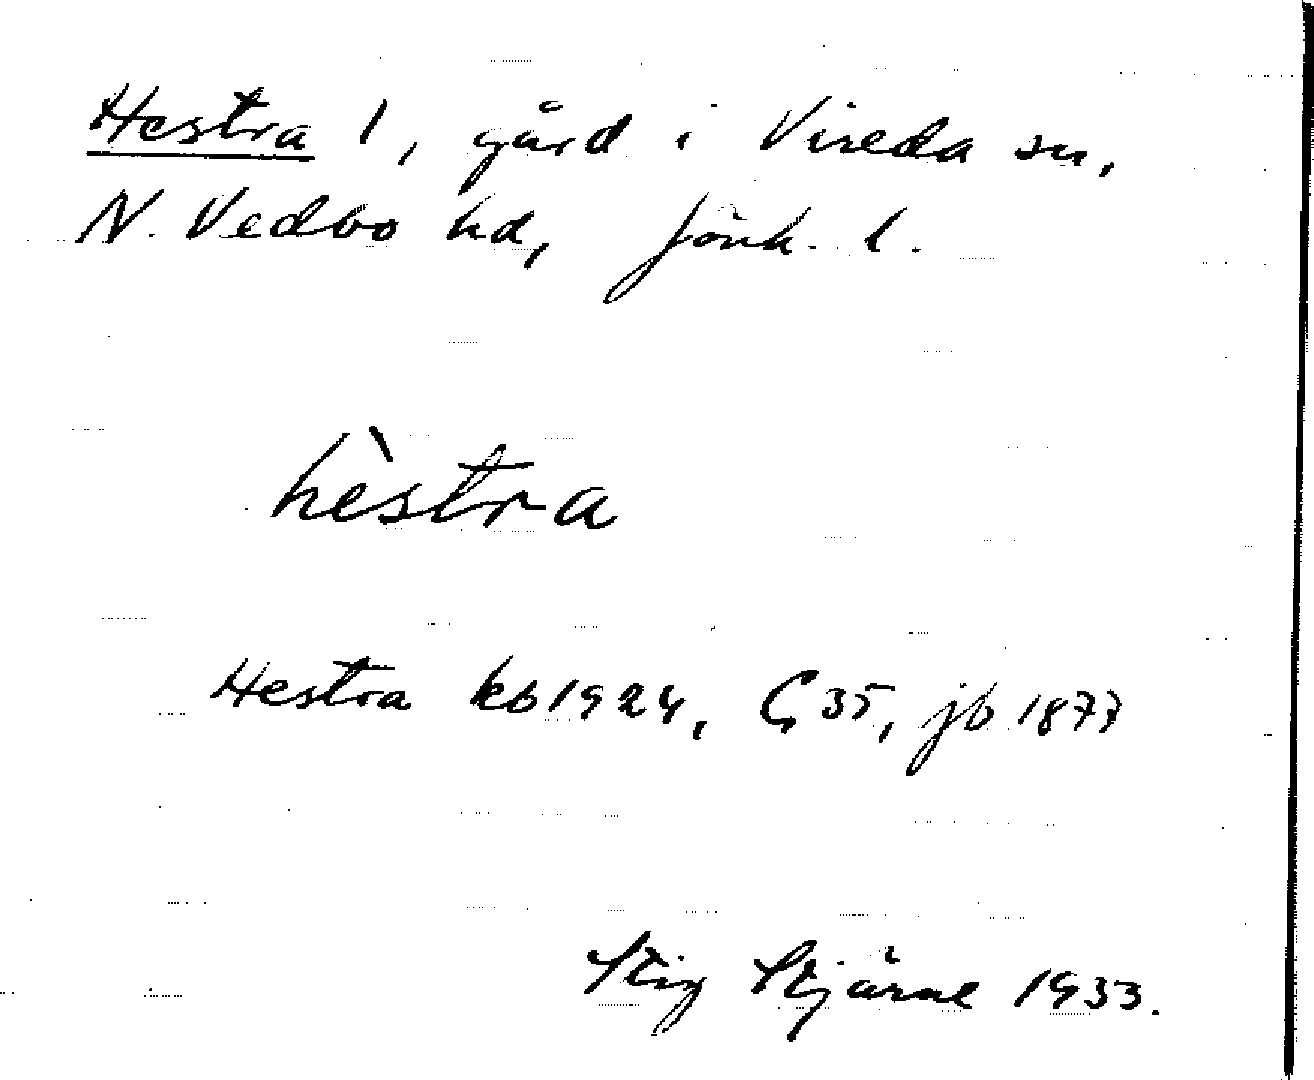 Hestra 1, gård i Vireda sn,
N. Vedbo hd, Jönk. l.
hèstra
Hestra kb 1924, G 35, jb 1877
Stig Stjärne 1933.